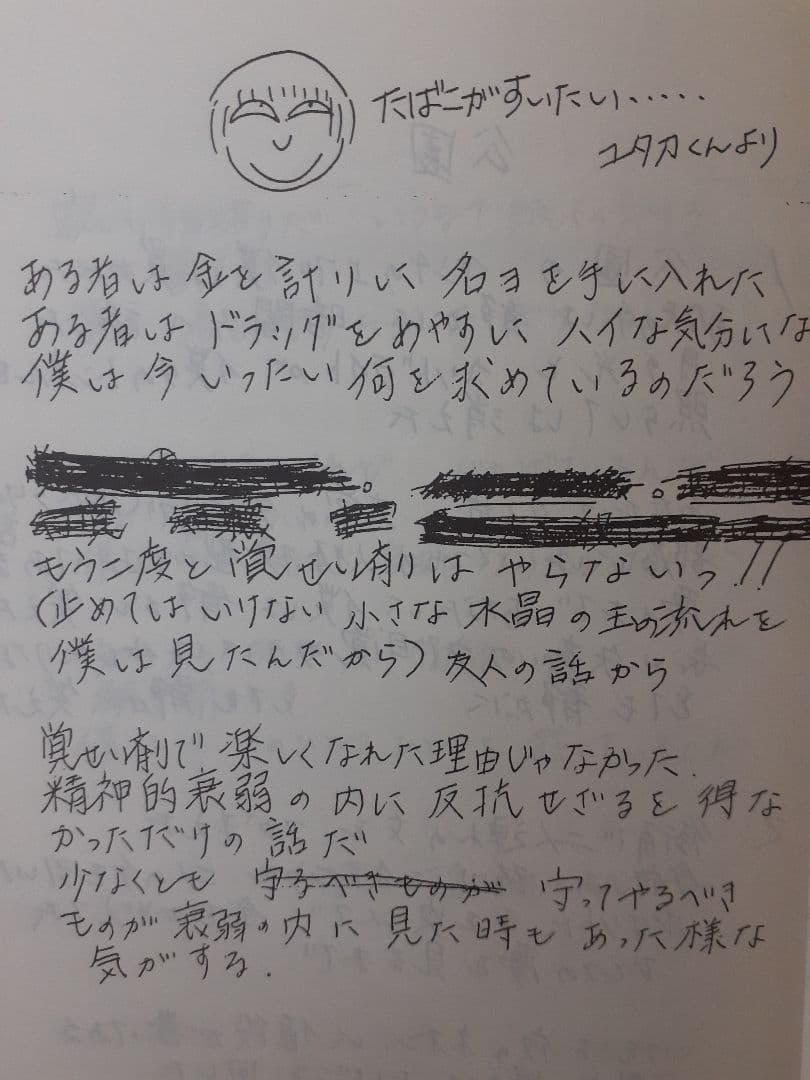 たばこがすいたい・・・・・
ユタカくんより
ある者は金を計りに 名ヨを手に入れた
ある者は ドラッグをめやすに ハイな気分にな
僕は今いったい何を求めているのだろう
もう二度と覚せい剤は やらないっ!!
(止めてはいけない 小さな 水晶の玉の流れを
僕は見たんだから) 友人の話から
覚せい剤で 楽しくなれた理由じゃなかった.
精神的衰弱の内に 反抗せざるを得な
かっただけの話だ
少なくとも 守るべきものが 守ってやるべき
ものが衰弱の内に 見た時も あった様な
気がする.